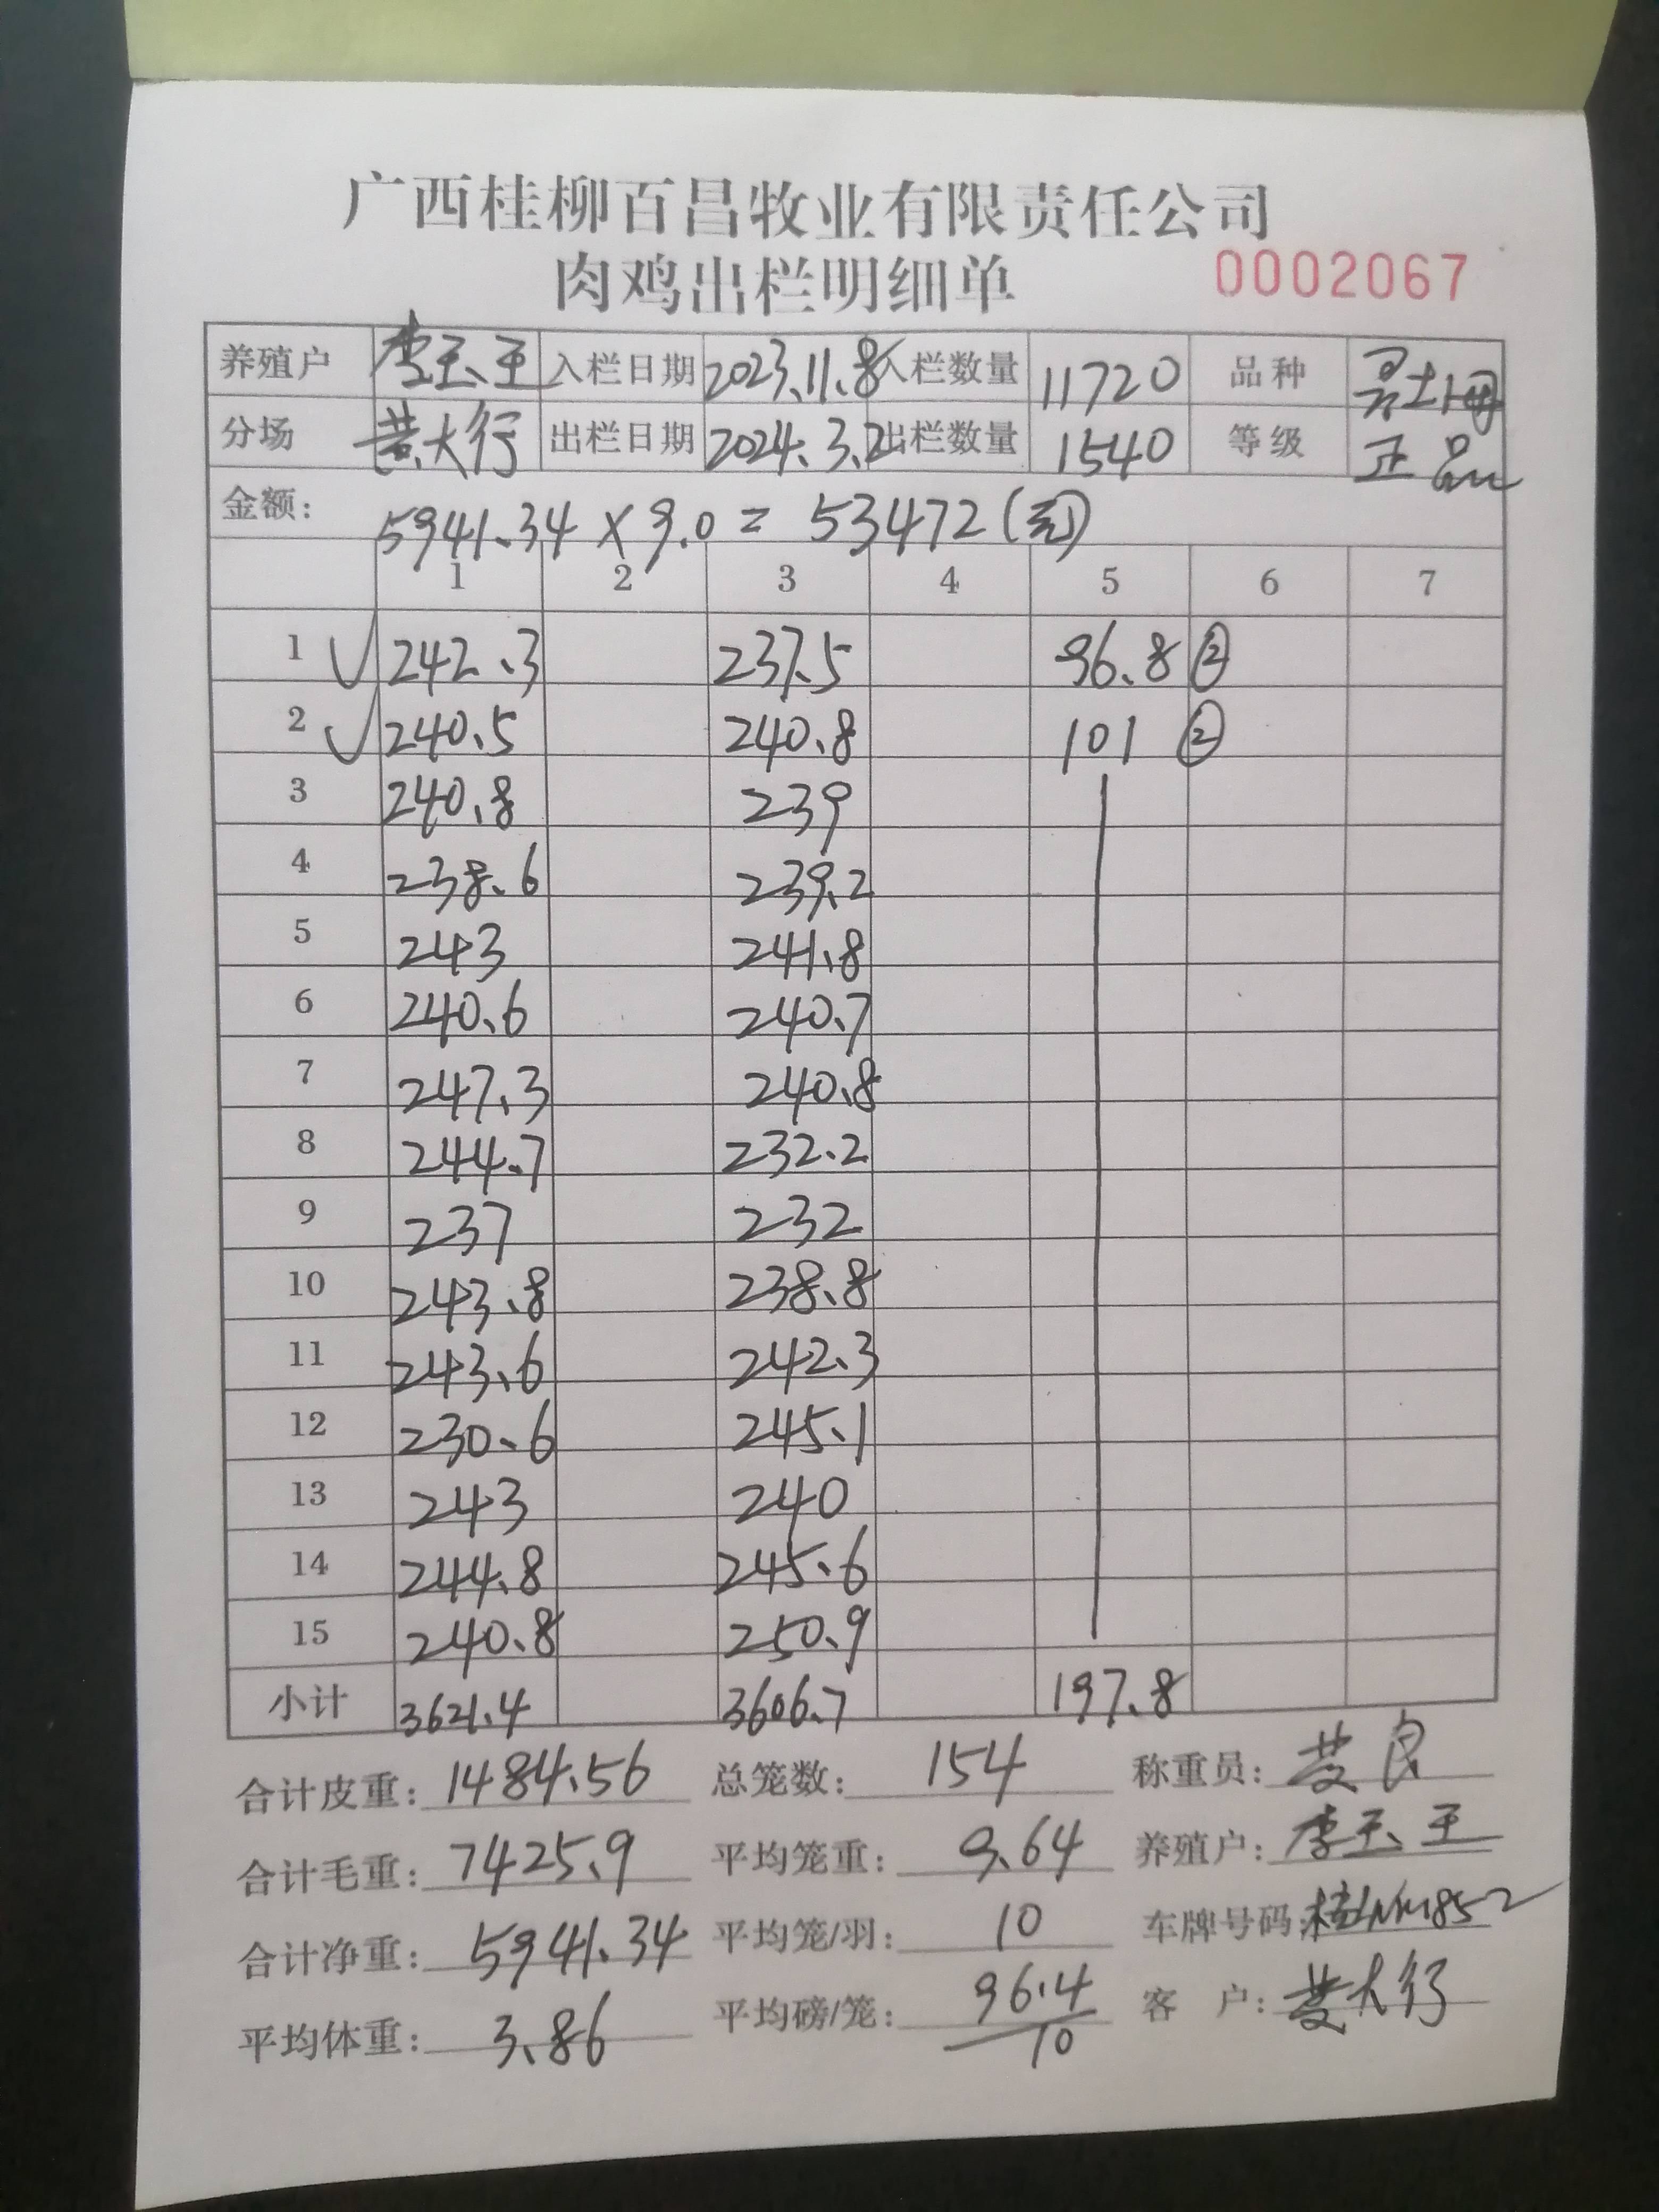 广西桂柳百昌牧业有限责任公司
肉鸡出栏明细单 0002067
养殖户 李玉王 入栏日期 2023.11.8 入栏数量 11720 品种
分场 黄大行 出栏日期 2024.3.2 出栏数量 1540 等级 正品
金额: 5941.34 × 9.0 = 53472(元)
1 2 3 4 5 6 7
1 ✓ 242.3 237.5 96.8 ②
2 ✓ 240.5 240.8 101 ②
3 240.8 239
4 238.6 239.2
5 243 241.8
6 240.6 240.7
7 247.3 240.8
8 244.7 232.2
9 237 232
10 243.8 238.8
11 243.6 242.3
12 230.6 245.1
13 243 240
14 244.8 245.6
15 240.8 250.9
小计 3621.4 3606.7 197.8
合计皮重: 1484.56 总笼数: 154 称重员:
合计毛重: 7425.9 平均笼重: 9.64 养殖户: 李玉王
合计净重: 5941.34 平均笼/羽: 10 车牌号码:
平均体重: 3.86 平均磅/笼: 96.4/10 客户: 黄大行